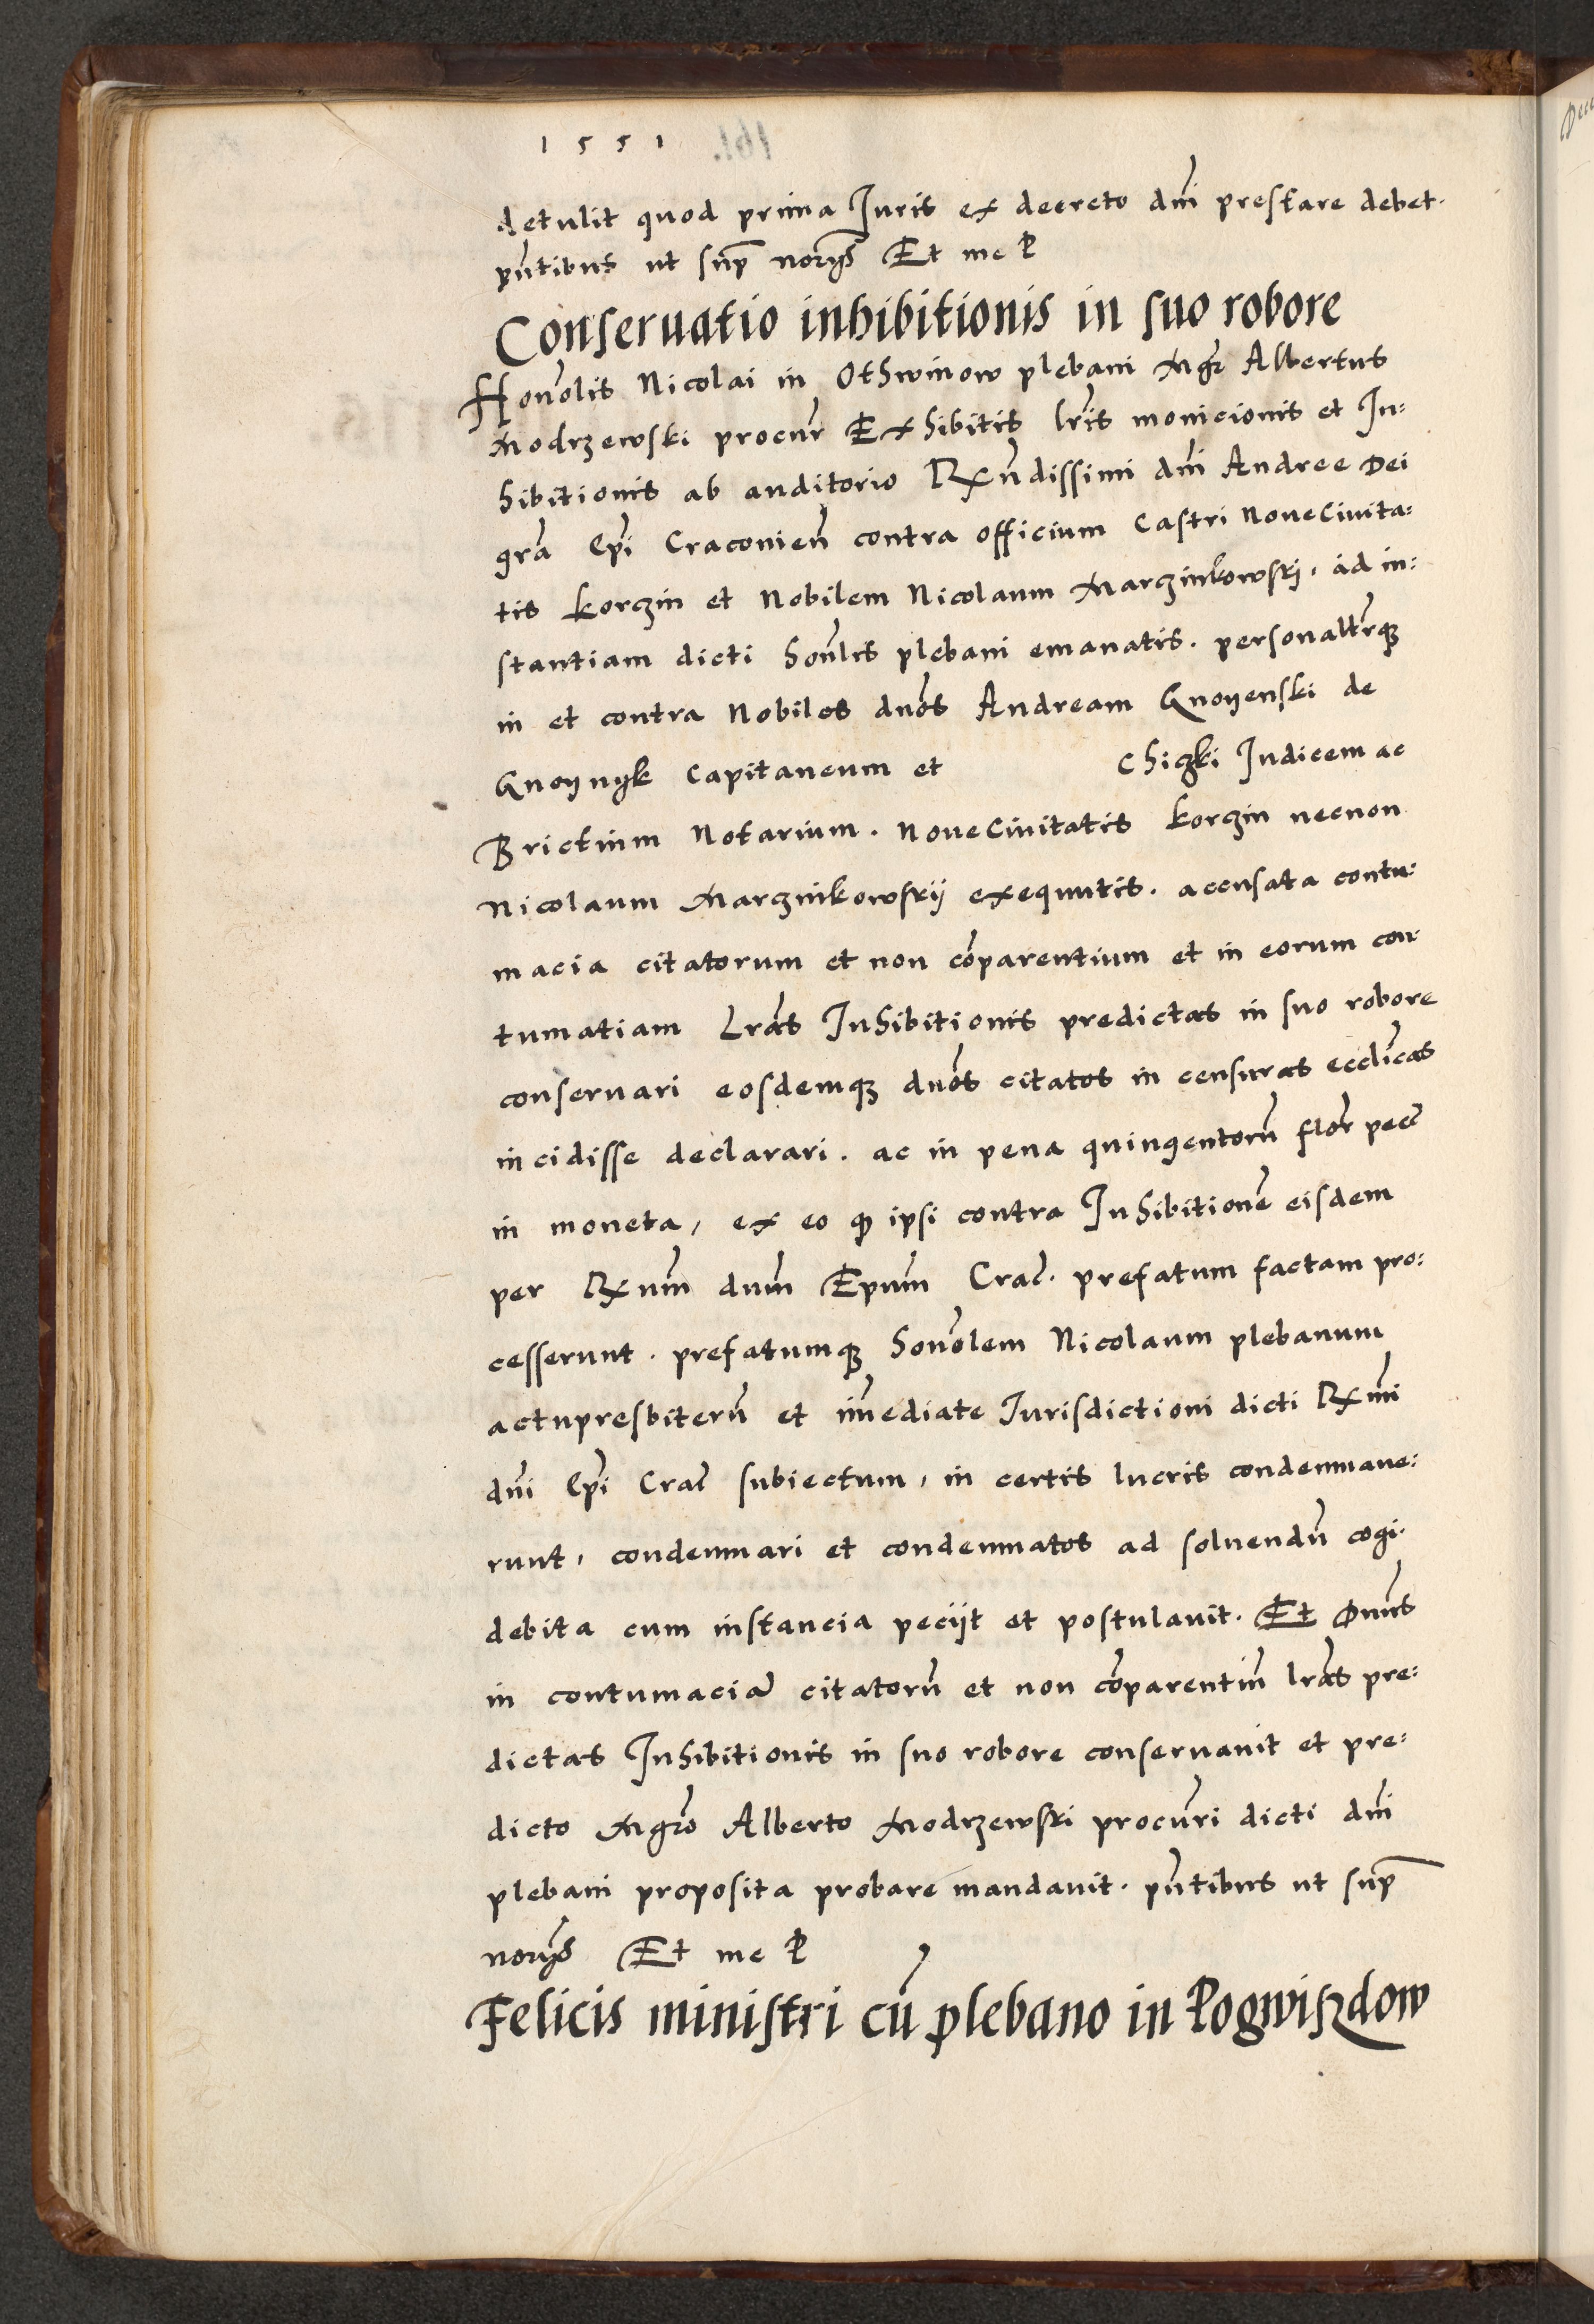 1551
detulit quod prima Iuris ex decreto dni prestare debet.
pntibus ut sup norijs Et me P
Conseruatio inhibitionis in suo robore
Honolis Nicolai in Othwinow plebani Mgr Albertus
Modrzewski procur Exhibitis lris monicionis et In:
hibitionis ab auditorio Rxndissimi dni Andree Dei
gra Epi Cracouien contra officium Castri NoueCiuita:
tis korczin et Nobilem Nicolaum Marczinkowskj, ad in:
stantiam dicti honlis plebani emanatis. personaltrqz
in et contra Nobiles dnos Andream Gnoyenski de
Gnoynyk Capitaneum et Chiczki Iudicem ac
Brictium Notarium. NoueCiuitatis korczin necnon
Nicolaum Marczinkowskij exequutis. accusata contu:
macia citatorum et non comparentium et in eorum con
tumatiam Lras Inhibitionis predictas in suo robore
conseruari eosdemqz dnos citatos in censuras ecclicas
incidisse declarari. ac in pena quingentoru flor pecc
in moneta, ex eo qz ipsi contra Inhibitione eisdem
per Rxum dnm Epum Crac. prefatum factam pro:
cesserunt. prefatumqz honolem Nicolaum plebanum
actupresbiteru et imediate Iurisdictioni dicti Rxmi
dni Epi Crac subiectum, in certis lucris condemnaue:
runt, condemnari et condemnatos ad soluendu cogi.
debita cum instancia peciit et postulauit. Et Dnus
in contumacia citatoru et non comparentiu lras pre:
dictas Inhibitionis in suo robore conseruauit et pre:
dicto Mgro Alberto Modrzewski procuri dicti dni
plebani proposita probare mandauit. pntibus ut sup
norijs Et me P
Felicis ministri cu plebano in Pogwiszdow